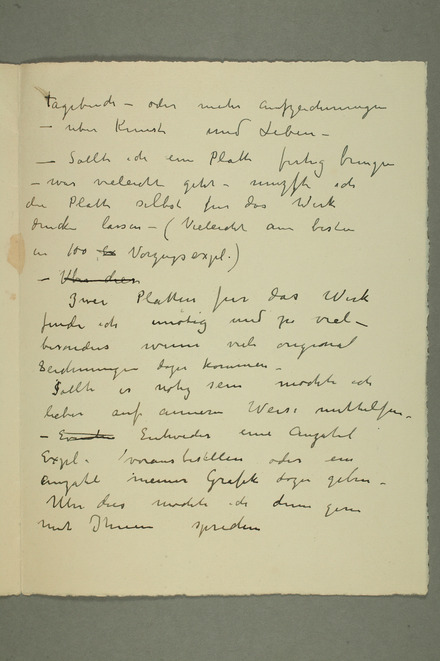 Tagebuch – oder mehr Aufzeichnungen
– über Kunst und Leben –
– Sollte ich eine Platte fertig bringen
– was vieleicht geht – müsste ich
die Platte selbst für das Werk
drucken lassen – (Vieleicht am besten
in 100 Vorzugsexpl.)
– Über dies
Zwei Platten für das Werk
finde ich unötig und zu viel –
besonders wenn viele original
Zeichnungen dazu kommen –
Sollte es nötig sein möchte ich
lieber auf anderer Weise mithelfen –
– Entweder eine Anzahl
Expl. vorausbestellen oder eine
Anzahl meiner Grafik dazu geben –
Über dies möchte ich dann gern
mit Ihnen sprechen